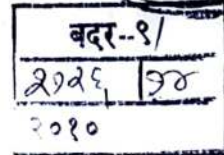 बदर--९/
२७२६, | ७४
२०१०